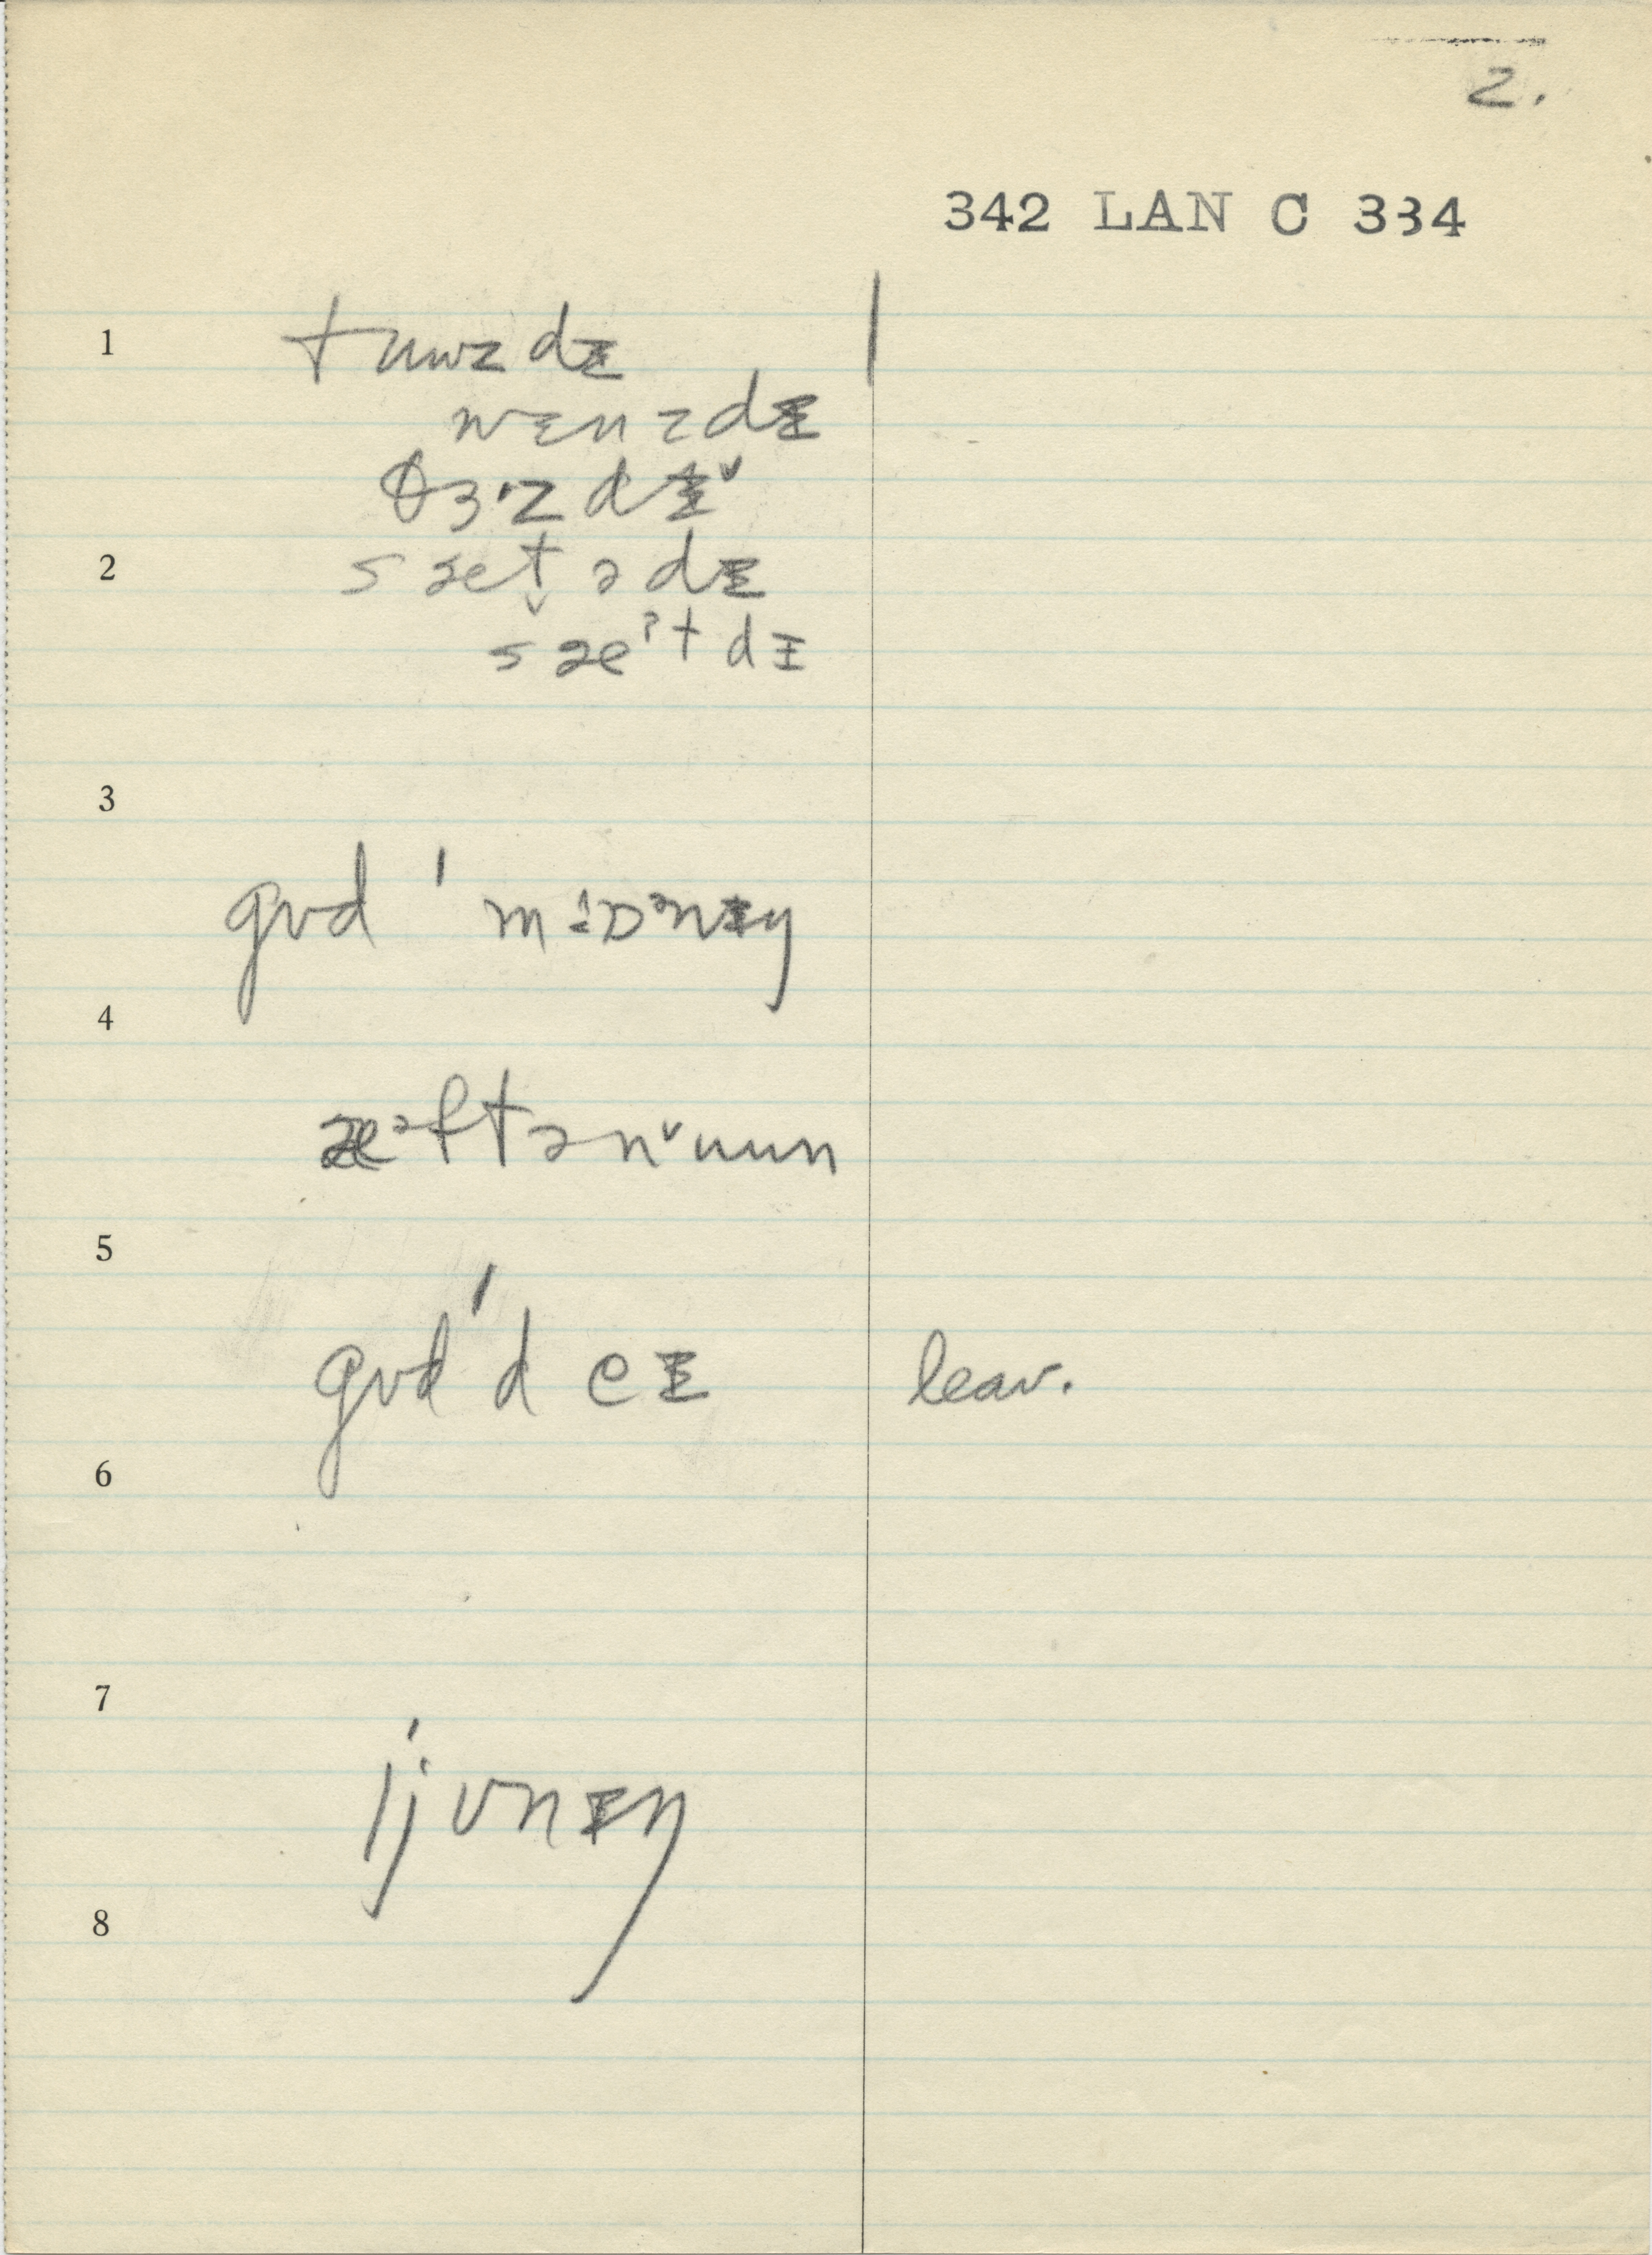 2.
342 LAN C 334
1 tuwz dɪ
wɛnzdɪ
θɜ·zdɪˇ
2 sæt̬ədɪ
sæˀtdɪ
3
gʊd ˈ mɔːᵊnɪŋ
4
æᵊftənˇuun
5
gʊdˈdeɪ leav.
6
7
ˈijvnɪŋ
8